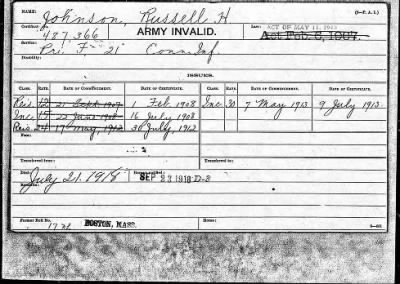 NAME: Johnson, Russell H (3—F. A. I.)
Certificate: 487,366 ARMY INVALID. Law: ACT OF MAY 11, 1912
Act Feb. 6, 1907.
Service: Pri. F 21 Conn. Inf.
Disability:
ISSUES.
CLASS. RATE. DATE OF COMMENCEMENT. DATE OF CERTIFICATE. CLASS. RATE. DATE OF COMMENCEMENT. DATE OF CERTIFICATE.
Reis. 12 21 Sept. 1907 1 Feb. 1908 Inc. 30 7 May 1913 9 July 1913.
Inc. 15 22 June 1908 16 July 1908
Reis. 24 17 May, 1912 30 July, 1912
Transferred to: Transferred from:
Died: July 21. 1918 SEP 23 1918 D-3
Former Roll No. BOSTON, MASS. Home: